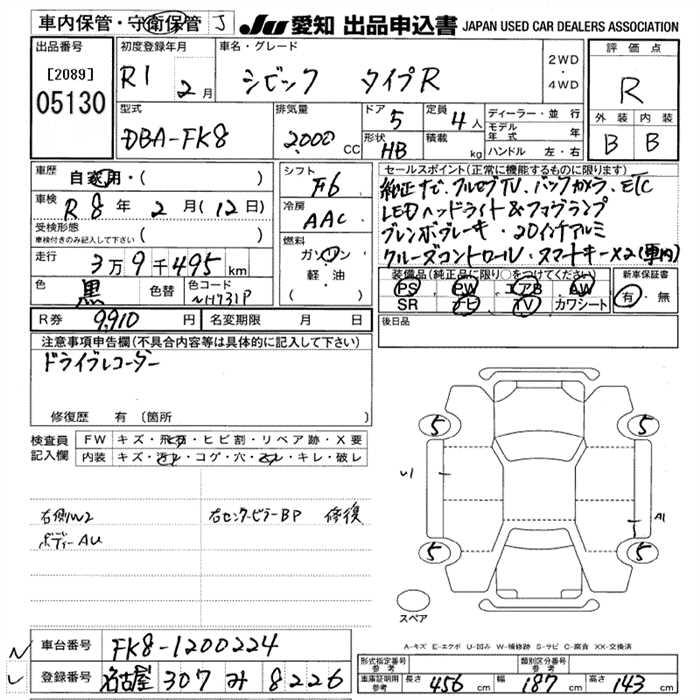 車内保管・守衛保管 J
JU 愛知 出品申込書 JAPAN USED CAR DEALERS ASSOCIATION
出品番号
[2089]
05130
初度登録年月
R1 2月
車名・グレード
シビック タイプR
2WD
・
4WD
評価点
R
外装 内装
B B
型式
DBA-FK8
排気量
2000 CC
ドア
5
定員
4人
形状
HB
積載
kg
ディーラー・並行
モデル年式 年
ハンドル 左・右
車歴
自家用・( )
車検
R8年 2月(12日)
受検形態
車検付きのみ記入して下さい ( )
走行
3万9千495km
色
黒
色替
色コード
NH731P
シフト
F6
冷房
AAC
燃料
ガソリン
軽・油
( )
セールスポイント(正常に機能するものに限ります)
純正ナビ・フルセグTV、バックカメラ、ETC
LEDヘッドライト&フォグランプ
ブレンボブレーキ・20インチアルミ
クルーズコントロール・スマートキー×2(車内)
装備品(純正品に限り○をつけてください)
PS PW エアB AW
SR ナビ TV カワシート
新車保証書
有・無
R券 9,910円
名変期限 月 日
後日品
注意事項申告欄(不具合内容等は具体的に記入して下さい)
ドライブレコーダー
修復歴 有 〔箇所 〕
検査員記入欄
FW キズ・飛石・ヒビ割・リペア跡・X要
内装 キズ・汚れ・コゲ・穴・スレ・キレ・破レ
右側W2
ボディーAU
右センターピラーBP 修復
5
5
U1
A1
5
5
スペア
A-キズ E-エクボ U-凹み W-補修跡 S-サビ C-腐食 XX-交換済
車台番号 FK8-1200224
登録番号 名古屋 307 み 8226
型式指定番号 参考
類別区分番号 参考
車庫証明用 参考
長さ 456 cm 幅 187 cm 高さ 143 cm